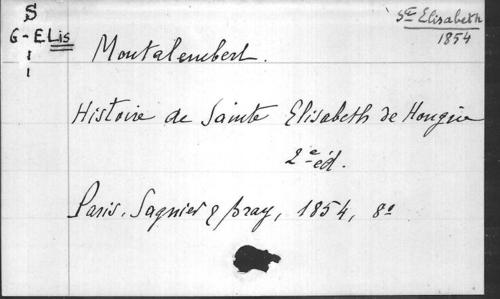 S
G-ELis
Ste Elisabeth
1854
Montalembert.
Histoire de Sainte Elisabeth de Hongrie
2e éd.
Paris, Sagnier & Bray, 1854, 8o